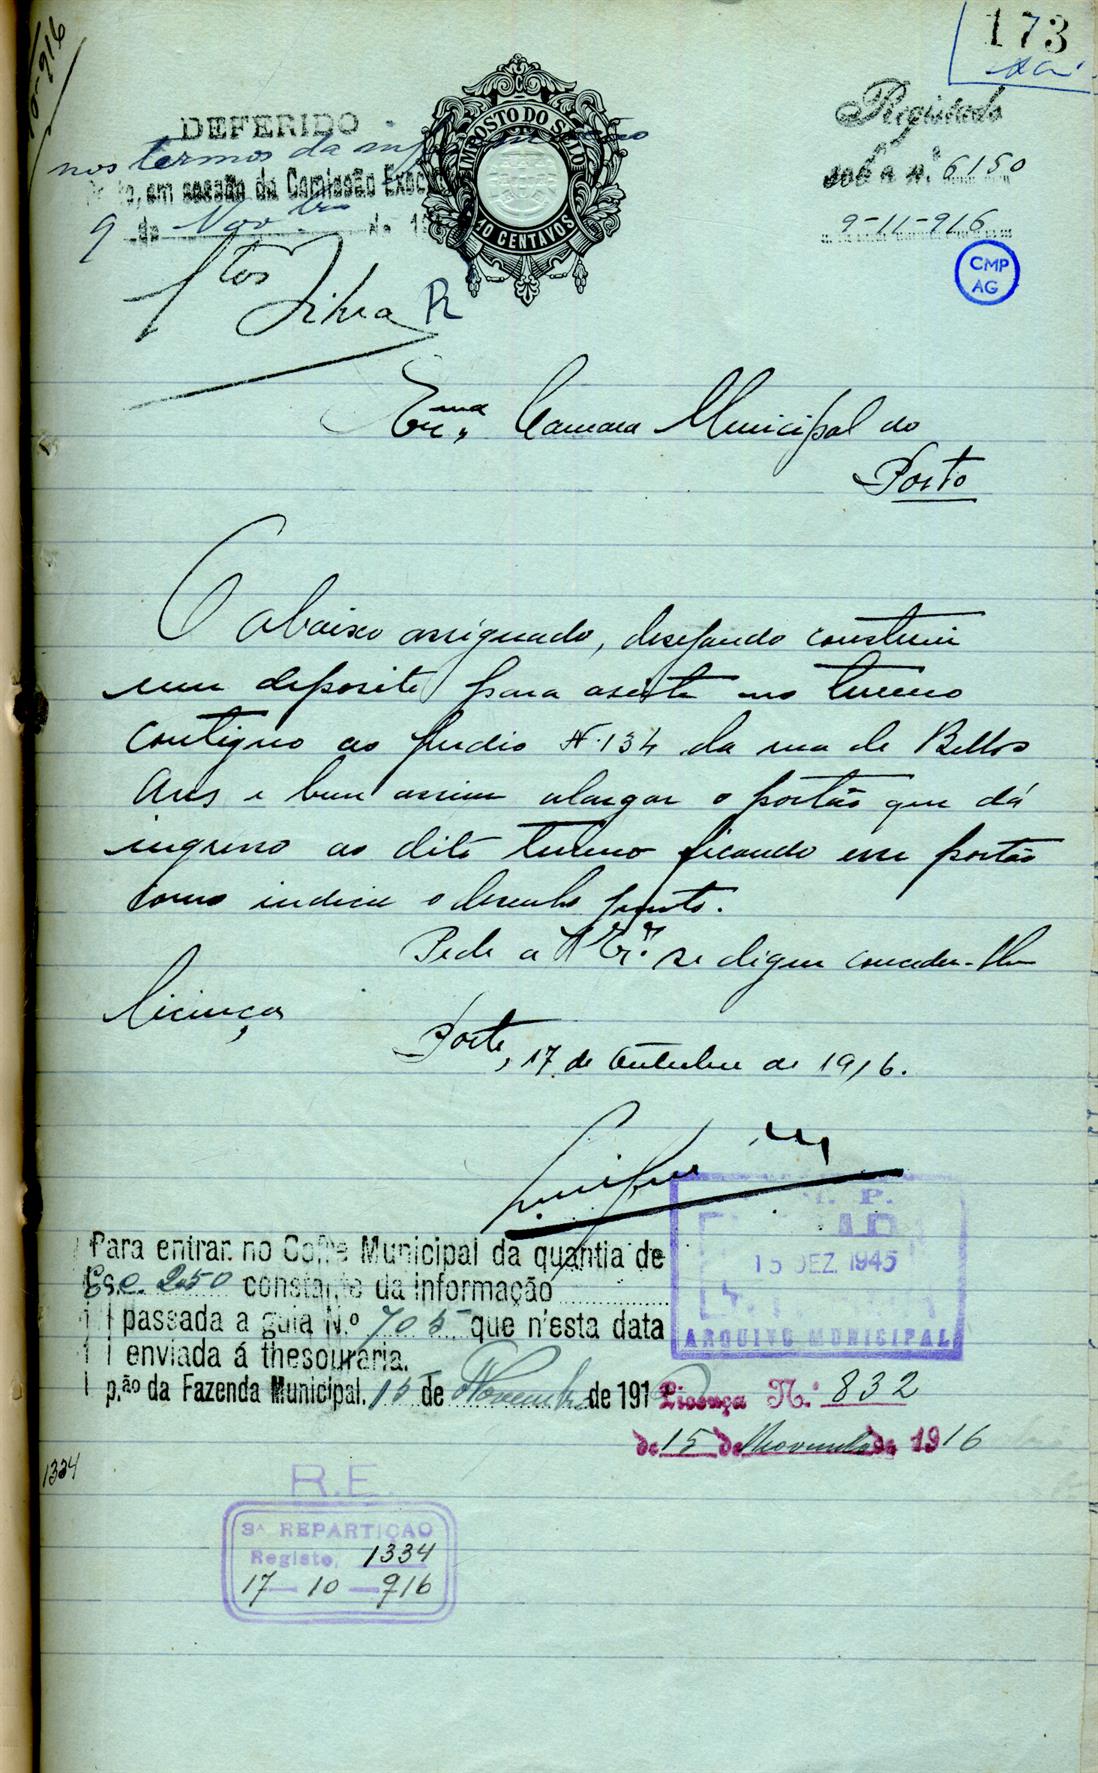 173
10-916
DEFERIDO
nos termos da informação
Porto, em sessão da Comissão Exec
9 de Novbro de 19
Stos Silva
R
IMPOSTO DO SELO
10 CENTAVOS
Registado
sob o n.º 6150
9-11-916
CMP
AG
Exma Camara Municipal do
Porto
O abaixo assignado, desejando construir
um deposito para aseite no terreno
contiguo ao predio Nº 134 da rua de Bellas
Artes e bem assim alargar o portão que dá
ingresso ao dito terreno ficando esse portão
como indica o desenho junto.
Pede a V. Ex.ª se digne conceder-lhe
licença
Porto, 17 de Outubro de 1916.
Para entrar no Cofre Municipal da quantia de
Esc. 2.50 constante da informação
passada a guia N.º 705 que n'esta data
enviada á thesouraria.
p.ão da Fazenda Municipal. 15 de Novembro de 1916
C. M. P.
15 DEZ. 1945
ARQUIVO MUNICIPAL
Licença N.º 832
de 15 de Novembro de 1916
1334
R.E.
3ª REPARTIÇÃO
Registo, 1334
17-10-916